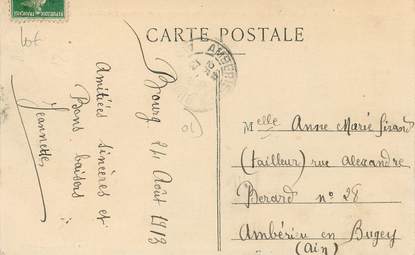 CARTE POSTALE
lot
Bourg 24 Août 1913
Amitiés sincères et
Bons baisers
Jeannette
Melle Anne Marie Girard
(tailleur) rue Alexandre
Berard n° 28
Ambérieu en Bugey
(Ain)